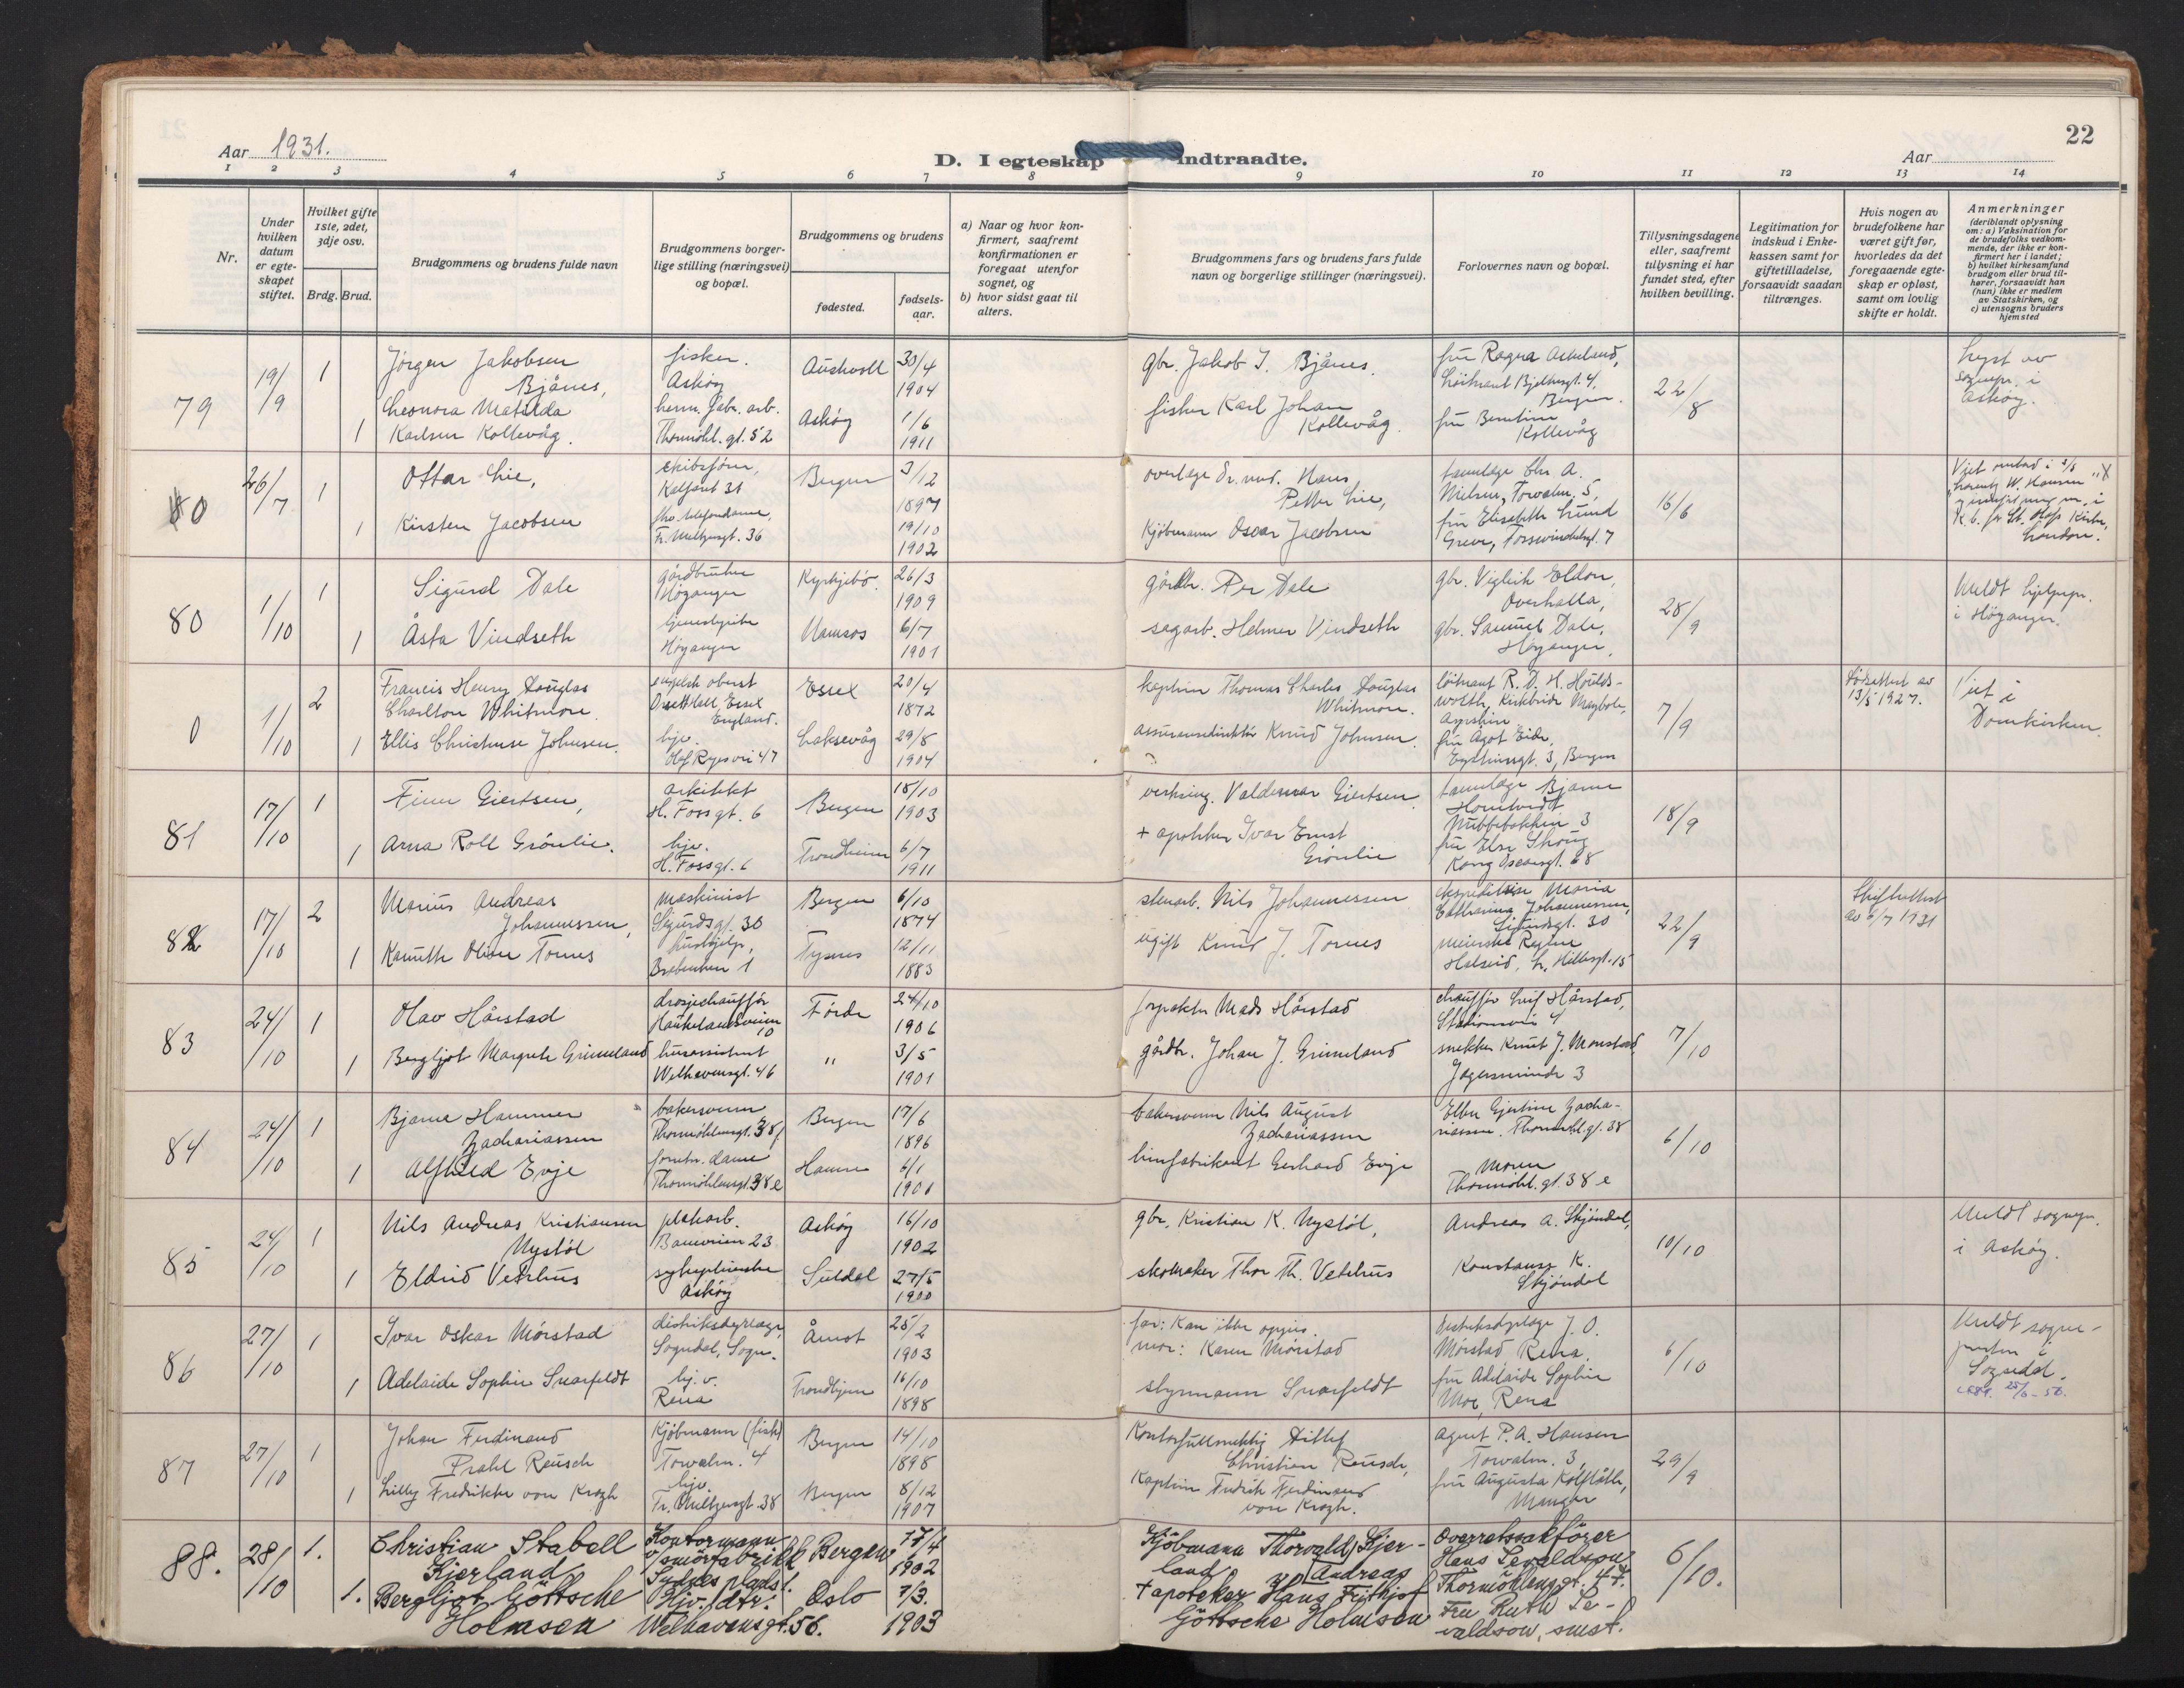 22
Aar 1931.
D. I egteskap indtraadte.
Aar
1 2 3 4 5 6 7 8 9 10 11 12 13 14
Nr.
Under hvilken datum er egteskapet stiftet.
Hvilket gifte 1ste, 2det, 3dje osv.
Brdg. Brud.
Brudgommens og brudens fulde navn
Brudgommens borgerlige stilling (næringsvei) og bopæl.
Brudgommens og brudens
fødested.
fødselsaar.
a) Naar og hvor konfirmert, saafremt konfirmationen er foregaat utenfor sognet, og
b) hvor sidst gaat til alters.
Brudgommens fars og brudens fars fulde navn og borgerlige stillinger (næringsvei).
Forlovernes navn og bopæl.
Tillysningsdagene eller, saafremt tillysning ei har fundet sted, efter hvilken bevilling.
Legitimation for indskud i Enkekassen samt for giftetilladelse, forsaavidt saadan tiltrænges.
Hvis nogen av brudefolkene har været gift før, hvorledes da det foregaaende egteskap er opløst, samt om lovlig skifte er holdt.
Anmerkninger
(deriblandt oplysning om: a) Vaksination for de brudefolks vedkommende, der ikke er konfirmert her i landet; b) hvilket kirkesamfund brudgom eller brud tilhører, forsaavidt han (hun) ikke er medlem av Statskirken, og c) utensogns bruders hjemsted
79 19/9 1 Jørgen Jakobsen Bjånes, fisker. Askøy Austevoll 30/4 1904 gbr. Jakob J. Bjånes. fru Ragna Askeland, Løitnant Bjelkesgt. 4. Bergen. 22/8 Lyst av sognepr. i Askøy.
1 Leonora Matilda Karlsen Kollevåg. herm. fabr. arb. Thormøhl. gt. 52 Askøy 1/6 1911 fisker Karl Johan Kollevåg. fru Berntine Kollevåg
0 26/7 1 Ottar Lie, skibsfører, Kalfaret 31 Bergen 3/12 1897 overlæge dr. med. Hans Petter Lie, tannlæge Chr. A. Nielsen, Torvalm. 5, 16/6
1 Kirsten Jacobsen Fr. Meltzersgt. 36 19/10 1902 Kjøbmann Oscar Jacobsen fru Elisabeth Lund Greve, Fosswinckelsgt. 7
80 1/10 1 Sigurd Dale gårdbruker Høyanger Kyrkjebø. 26/3 1909 gårdbr. Per Dale gbr. Viglerik Eldon, Overhalla, 28/9 Meldt hjelpepr. i Høyanger.
1 Åsta Vindseth Høyanger Namsos 6/7 1901 sagarb. Helmer Vindseth gbr. Samuel Dale, Høyanger.
0 1/10 2 Francis Henry Douglas Charlton Whitmore. engelsk oberst Orsett Hall Essex England. Essex 20/4 1872 kaptein Thomas Charles Douglas Whitmore. løitnant R. D. H. Houldsworth, Kirkbride Maybole, Ayrshire 7/9 Dødsattest av 13/5 1927. Viet i Domkirken.
1 Ellis Christense Johnsen. hjv. Olaf Ryesvei 47 Laksevåg 29/8 1904 assuransedirektør Knud Johnsen. fru Agot Eide, Bergen
81 17/10 1 Finn Giertsen, arkitekt H. Fossgt. 6 Bergen 18/10 1903 verksing. Valdemar Giertsen tannlæge Bjarne Homtvedt Nubbebakken 3 18/9
1 Arna Roll Grönlie. hjv. H. Fossgt. 6 Trondheim 6/7 1911 + apotheker Ivar Ernst Grönlie fru Else Skoug Kong Oscarsgt. 68
82 17/10 2 Marius Andreas Johannessen, maskinist Sigurdsgt. 30 Bergen 6/10 1874 stenarb. Nils Johannessen Maria Catharina Johannessen, Sigurdsgt. 30 22/9 Skifteattest av 6/7 1931
1 Kanutte Oline Tornes hushjelp, 1 Tysnes 12/11 1883 ugift Knud J. Tornes meierske Regine Halseid, L. Hillesgt. 15
83 24/10 1 Olav Hårstad drosjechauffør Haukelandsveien 10 Førde 24/10 1906 forpakter Mads Hårstad chauffør Leif Hårstad, Stationsvei 4 7/10
1 Bergljot Margrete Grimeland husassistent Welhavensgt. 46 „ 3/5 1901 gårdbr. Johan J. Grimeland snekker Knut J. Monstad, Jægersminde 3
84 24/10 1 Bjarne Hammer Zachariassen bakersvenn Thormøhlensgt. 38 Bergen 17/6 1896 bakersvenn Nils August Zachariassen Ellen Gjertine Zachariassen. Thormøhl. gt. 38 6/10
1 Alfhild Evje forretn. dame Thormøhlensgt. 38 e Hamre 6/1 1901 limfabrikant Gerhard Evje Moren Thormøhl. gt. 38 e
85 24/10 1 Nils Andreas Kristiansen Nystøl platearb. 23 Askøy 16/10 1902 gbr. Kristian K. Nystøl, Andreas A. Skjöndal, 10/10 Meldt sognepr. i Askøy.
1 Eldrid Vetrhus sykepleierske Askøy Suldal 27/5 1900 skomaker Thor Th. Vetrhus Konstanse K. Skjöndal
86 27/10 1 Ivar Oskar Mörstad distriksdyrlæge, Sogndal, Sogn. Åmot 25/2 1903 far: Kan ikke opgies. mor: Karen Mörstad distriksdyrlæge J. O. Mörstad Rena. 6/10 Meldt sognepresten i Sogndal.
1 Adelaide Sophie Snarfeldt hj. v. Rena Trondhjem 16/10 1898 styrmann Snarfeldt fru Adelaide Sophie Moe, Rena
87 27/10 1 Johan Ferdinand Prahl Reusch Kjøbmann (fisk) Torvalm. 4 Bergen 14/10 1898 Kontorfullmektig Ditlef Christian Reusch, agent P. A. Hansen Torvalm. 3, 29/9
1 Lilly Fredrikke von Krogh hjv. Fr. Meltzersgt. 38 Bergen 8/12 1907 Kaptein Fredrik Ferdinand von Krogh. fru Augusta Kolflåth, Manger
88. 28/10 1. Christian Stabell Kjerland Kontormann v/ smörfabrikk Bergen 17/4 1902 Kjöbmann Thorvald Andreas Kjerland Overretssakförer Hans Sevaldson Thormöhlensgt. 47. 6/10.
1. Bergljot Göttsche Holmsen Hjv. dtr. Welhavensgt. 56. Oslo 7/3. 1903 + apoteker Hans Frithjof Göttsche Holmsen Fru Ruth Sevaldson, smst.